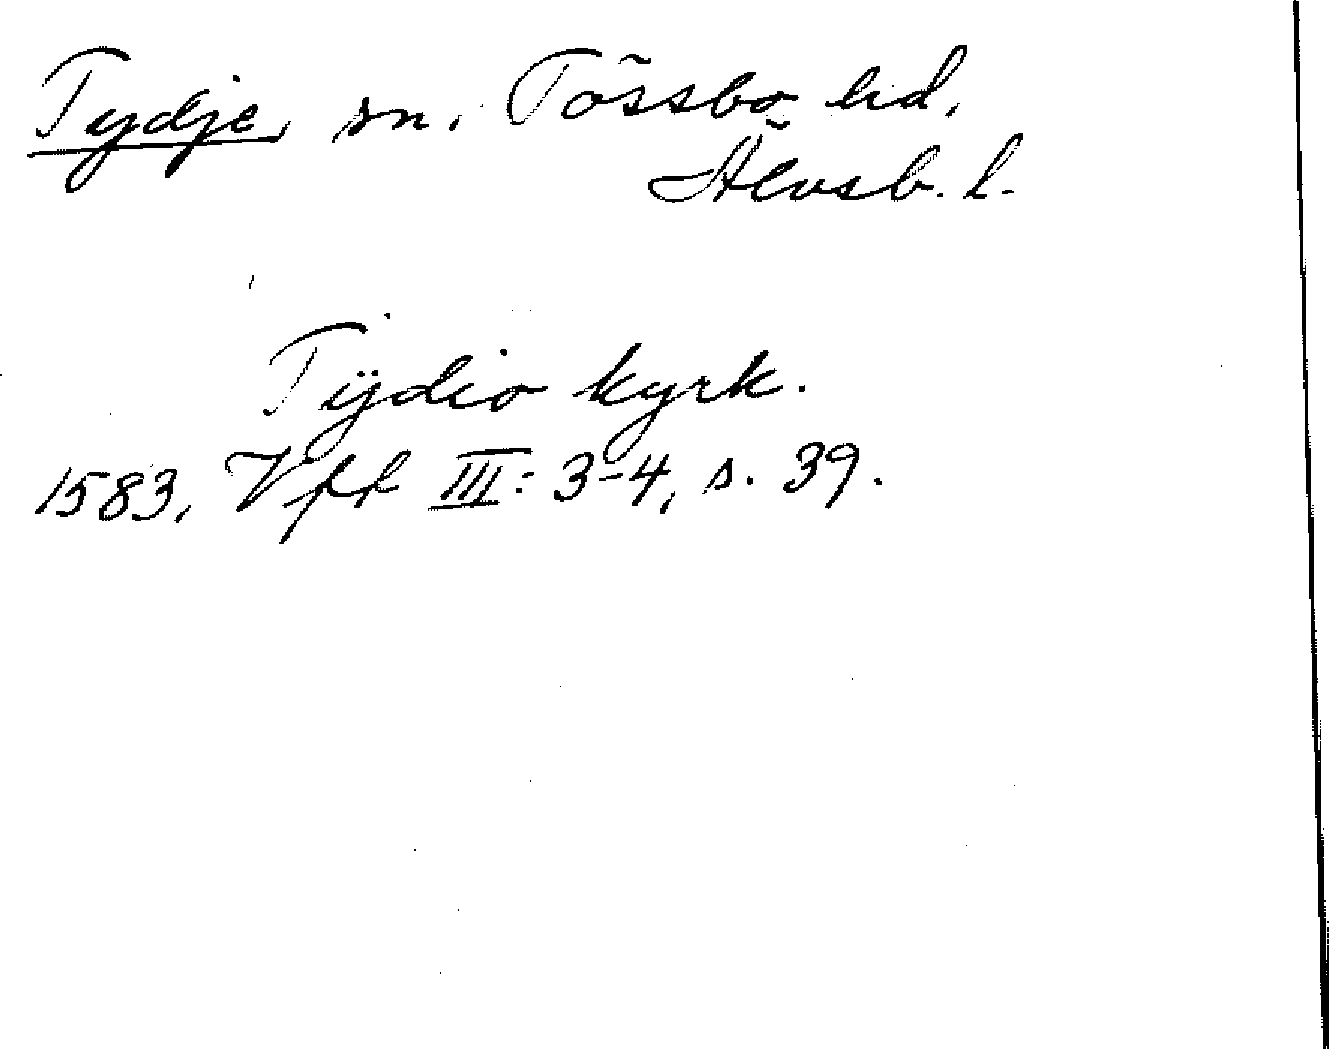 Tydje sn. Tössbo hd.
Älvsb. l.
Tÿdio kyrk.
1583, Vfft III: 3-4, s. 39.